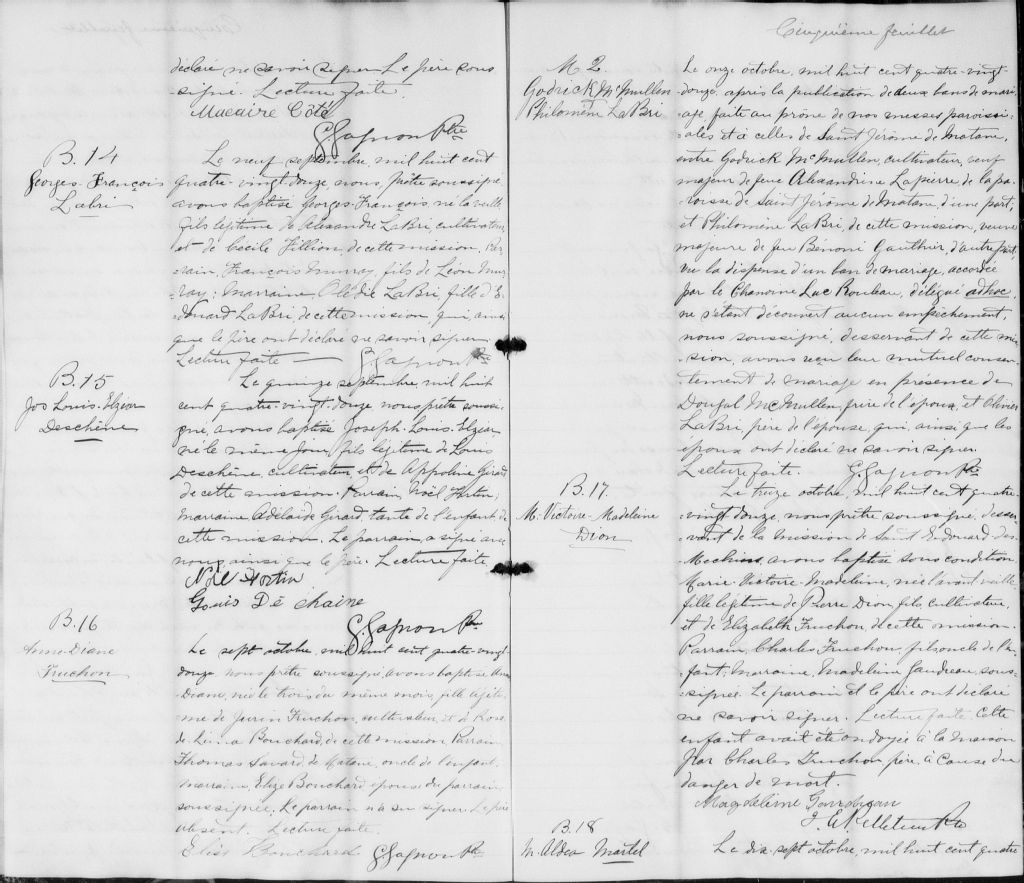 déclaré ne savoir signer. Le père sous
signé. Lecture faite.
Macaire Côté
G Gagnon Ptre
B. 14
Georges-François
Labri
Le neuf septembre, mil huit cent
quatre-vingt-douze, nous, prêtre soussigné,
avons baptisé Georges-François né la veille
fils légitime de Alexandre LaBri, cultivateur
et de Cécile Fillion, de cette mission. Par-
rain, François Murray, fils de Léon Mur-
ray; Marraine, LaBri, fille d'E-
douard LaBri, de cette mission, qui, ainsi
que le père ont déclaré ne savoir signer
Lecture faite — G Gagnon Ptre
B. 15
Jos Louis-Elzéar
Deschêne
Le quinze septembre, mil huit
cent quatre-vingt-douze, nous prêtre soussi-
gné, avons baptisé Joseph-Louis-Elzéar,
né le même jour, fils légitime de Louis
Deschêne, cultivateur et de Appoline Girard
de cette mission. Parrain, Noël Fortin;
marraine Adélaïde Girard, tante de l'enfant, de
cette mission. Le parrain a signé avec
nous, ainsi que le père. Lecture faite
Noël Fortin
Louis Dé chaine
G. Gagnon Ptre
B. 16
Anne-Diane
Truchon
Le sept octobre, mil huit cent quatre-vingt-
douze nous prêtre soussigné, avons baptisé Anne
Diane, née le trois du même mois, fille légiti-
me de Truchon, cultivateur, et de Rose
de Lima Bouchard, de cette mission. Parrain
Thomas Savard, de Matane, oncle de l'enfant,
marraine, Elize Bouchard épouse du parrain
soussignée. Le parrain n'a su signer. Le père
absent. Lecture faite.
Elise Bouchard G Gagnon Ptre
Cinquième feuillet
M 2.
Godrick McMullen
&
Philomène LaBri
Le onze octobre, mil huit cent quatre-vingt-
douze, après la publication de deux bans de mari-
age faite au prône de nos messes paroissi-
ales et à celles de Saint Jérôme de Matane,
entre Godrick McMullen, cultivateur, veuf
majeur de feue Alexandrine Lapierre, de la pa-
roisse de Saint Jérôme de Matane d'une part;
et Philomène LaBri, de cette mission, veuve
majeure de feu Bénoni Gauthier, d'autre part,
vu la dispense d'un ban de mariage, accordée
par le Chanoine Luc Rouleau, délégué adhoc,
ne s'étant découvert aucun empêchement,
nous soussigné, desservant de cette mis-
sion, avons reçu leur mutuel consen-
tement de mariage en présence de
Dougal McMullen, frère de l'époux, et Olivier
LaBri, père de l'épouse, qui, ainsi que les
époux ont déclaré ne savoir signer.
Lecture faite. G Gagnon Ptre
B. 17.
M. Victoire-Madeleine
Dion
Le treize octobre, mil huit cent quatre-
vingt-douze, nous prêtre soussigné, desser-
vant de la mission de Saint Edouard des
Méchins, avons baptisé sous condition
Marie-Victoire-Madeleine, née l'avant veille
fille légitime de Pierre Dion, fils, cultivateur,
et de Elizabeth Truchon, de cette mission.
Parrain, Charles Truchon, fils oncle de l'en-
fant; marraine, Madeleine Gaudreau, sous-
signée. Le parrain et le père ont déclaré
ne savoir signer. Lecture faite. Cette
enfant avait été ondoyée à la maison
par Charles Truchon, père, à cause du
danger de mort.
J. E Pelletier Ptre
B. 18
M. Aldea Martel
Le dix-sept octobre, mil huit cent quatre